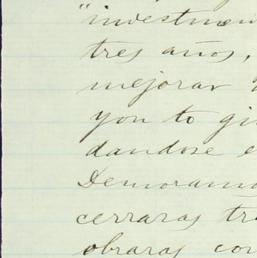 "investmen
tres años,
mejorar
you to gi
dandose e
Demoramo
cerraras tr
obraras con